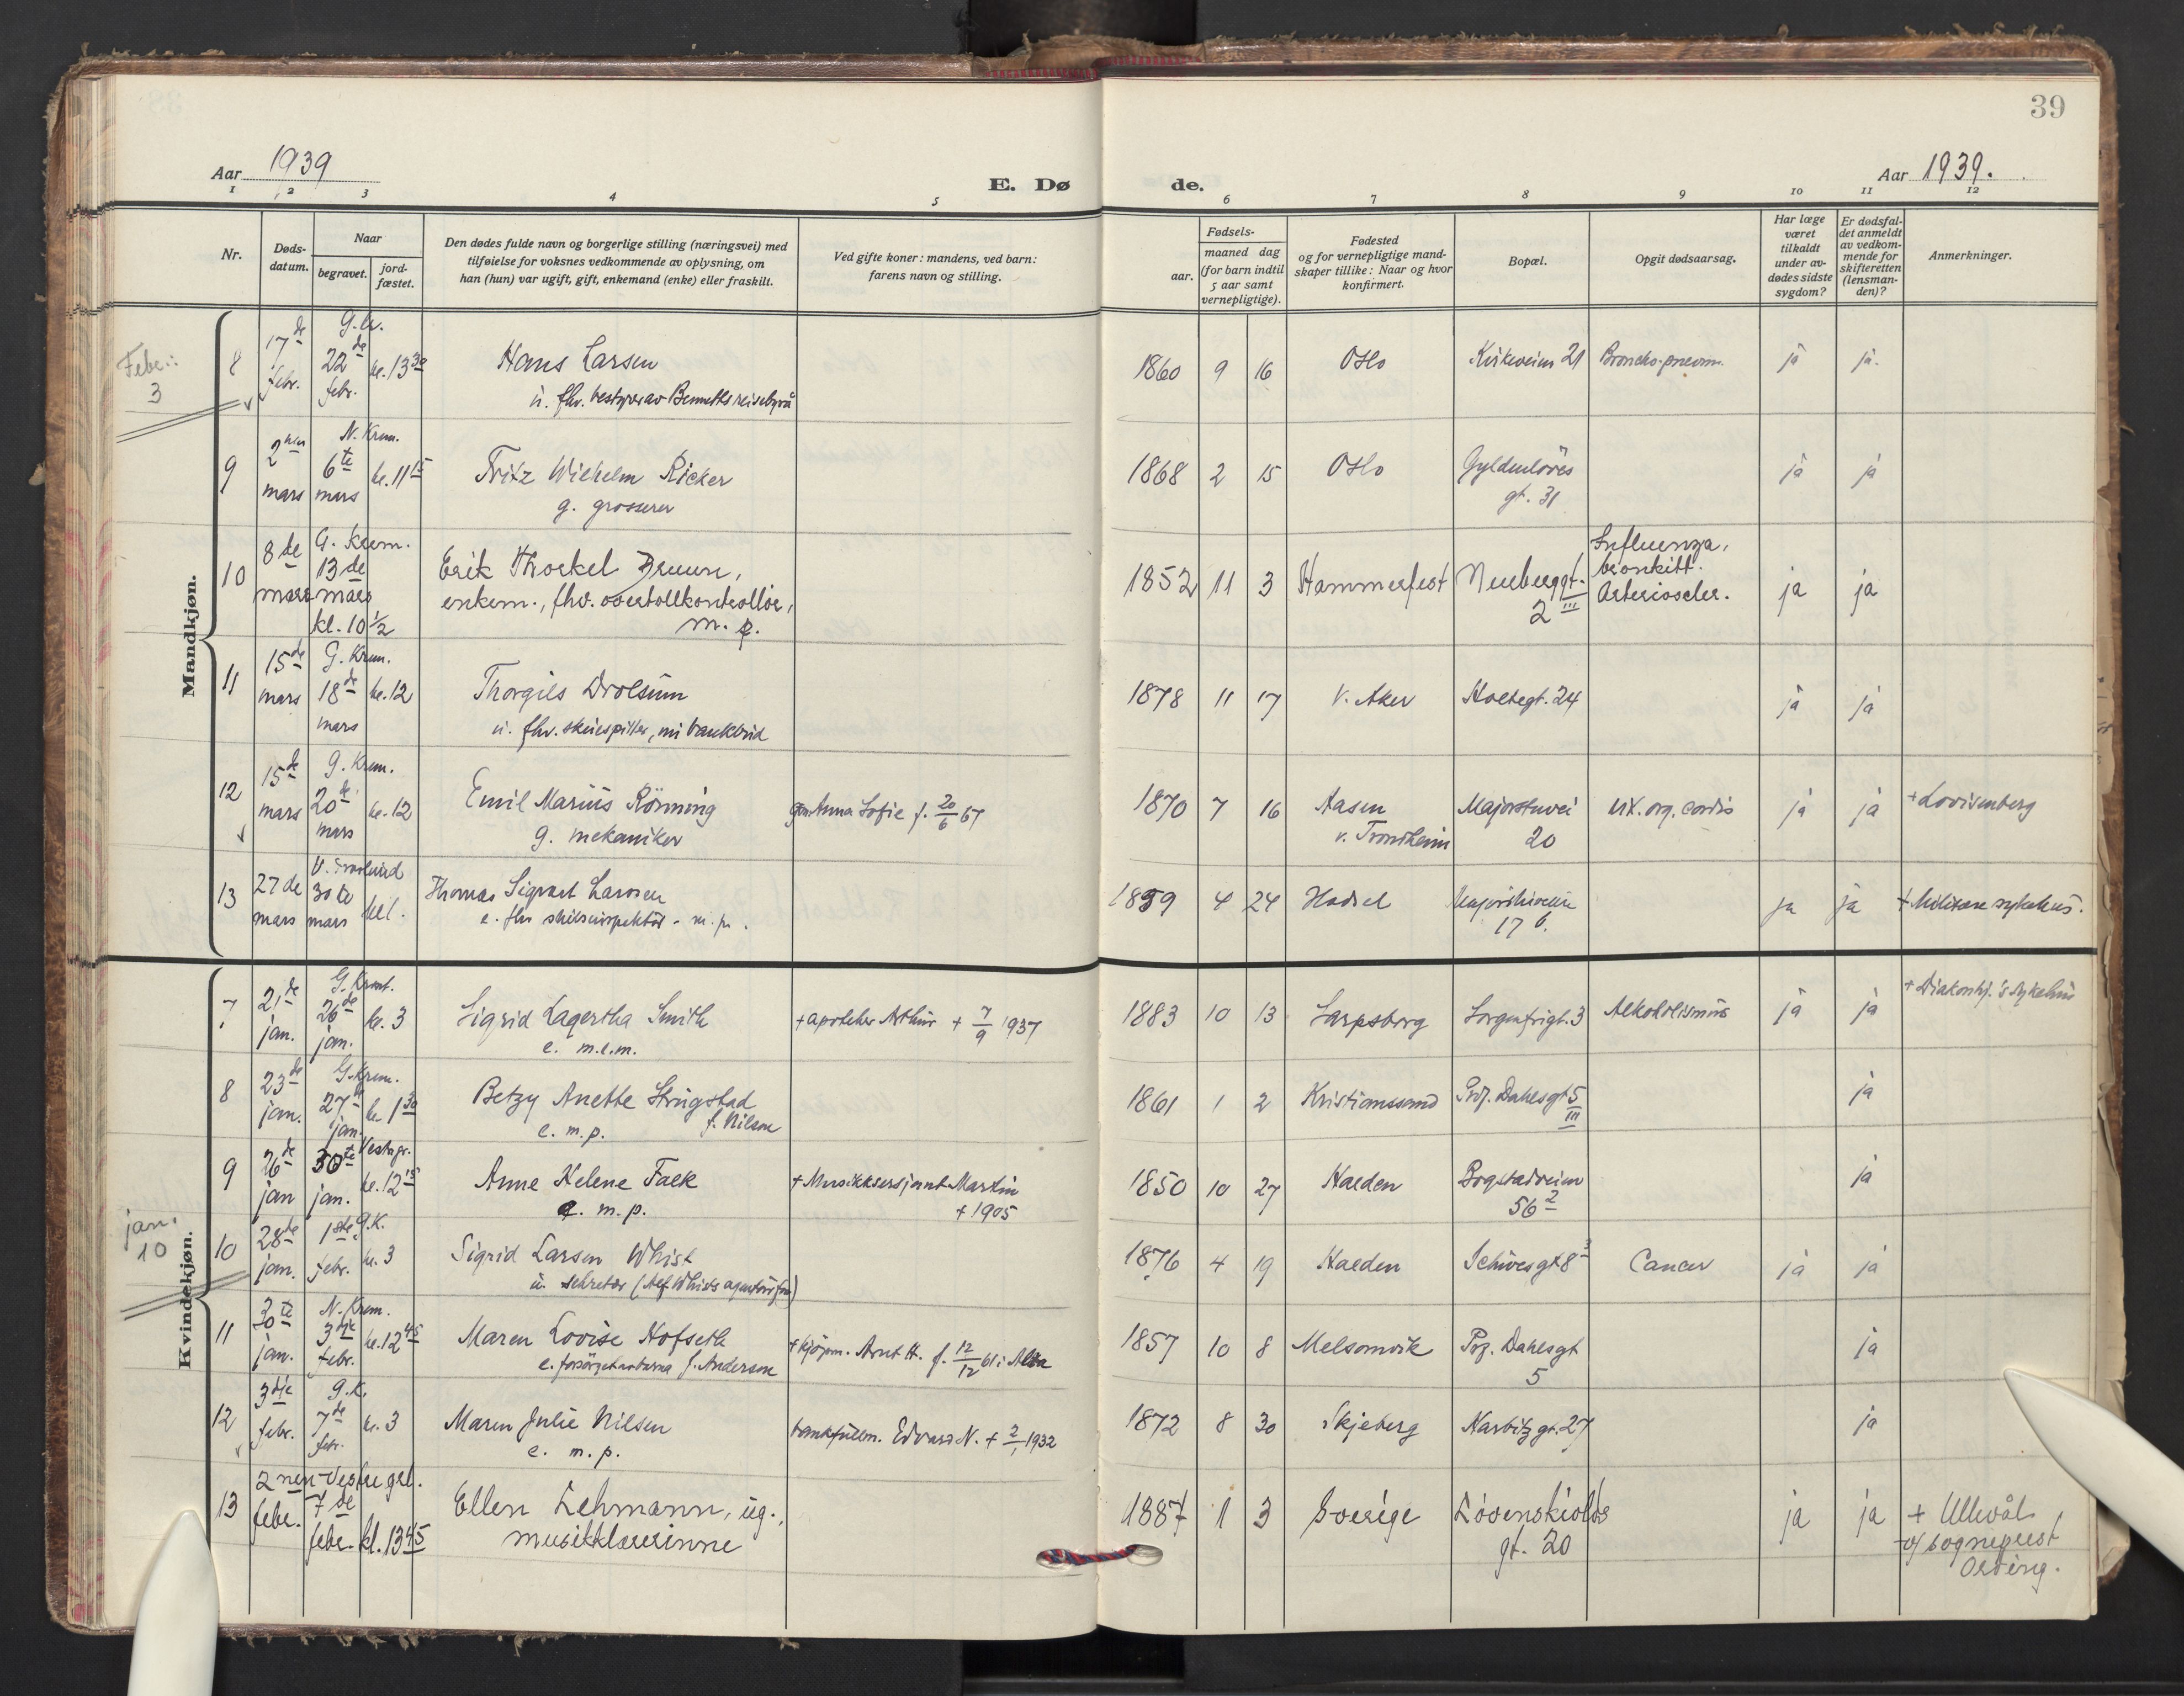 39
Aar 1939
E. Dø
de.
Aar 1939.
1 2 3 4 5 6 7 8 9 10 11 12
Nr.
Døds-
datum.
Naar
begravet.
jord-
fæstet.
Den dødes fulde navn og borgerlige stilling (næringsvei) med
tilføielse for voksnes vedkommende av oplysning, om
han (hun) var ugift, gift, enkemand (enke) eller fraskilt.
Ved gifte koner: mandens, ved barn:
farens navn og stilling.
Fødsels-
aar.
maaned dag
(for barn indtil
5 aar samt
vernepligtige).
Fødested
og for vernepligtige mand-
skaper tillike: Naar og hvor
konfirmert.
Bopæl.
Opgit dødsaarsag.
Har læge
været
tilkaldt
under av-
dødes sidste
sygdom?
Er dødsfal-
det anmeldt
av vedkom-
mende for
skifteretten
(lensman-
den)?
Anmerkninger.
Mandkjøn.
Febr.:
3
8
17de
febr.
22de
febr.
kl. 13 30
Hans Larsen
u. fhv. bestyrer av Bennetts reisebyrå
1860 9 16 Oslo Kirkeveien 21 Broncho-pneum. ja ja.
9
2nen
mars
N. Krem.
6te
mars
kl. 11 15
Fritz Wilhelm Ricker
g. grosserer
1868 2 15 Oslo Gyldenløves
gt. 31
ja ja
10
8de
mars
G. Krem.
13de
mars
kl. 10 1/2
Erik Thorkel Bruun,
enkem., fhv. overtollkontrollør,
m. p.
1852 11 3 Hammerfest Neuberggt.
2 III
Influenza,
bronkitt.
Arterioscler.
ja ja
11
15de
mars
G. Krem.
18de
mars
kl. 12
Thorgils Drolsum
u. fhv. skuespiller, nu bankbud
1878 11 17 V. Aker Holtegt. 24 ja ja
12
15de
mars
G. Krem.
20de
mars
kl. 12
Emil Marius Rönning
g. mekaniker
Anna Sofie f. 20/6 67
1870 7 16 Aasen
v. Trondheim
Majorstuvei
20
vit. org. cordis ja ja + Lovisenberg
13
27de
mars
30te
mars
Thomas Sigvart Larssen
1859 4 24 Hadsel
17 b.
ja ja + Militære sykehus.
Kvindekjøn.
7
21de
jan.
G. Kremt.
26de
jan.
kl. 3
Sigrid Lagertha Smith
e. m.e.m.
+ apoteker Arthur + 7/9 1937
1883 10 13 Sarpsborg Sorgenfrigt. 3 Alkoholismus ja ja + Diakonhj.'s sykehus
8
23de
jan.
G. Krem.
27de
jan.
kl. 1 30
Betzy Anette Strugstad
e. m. p. f. Nilsen
1861 1 2 Kristianssand Prof. Dahlsgt 5
III
ja
9
26de
jan
30te
jan.
Vestre gr.
kl. 12 15
Anne Helene Falk
e. m. p.
+ Musikksersjant Martin
+ 1905
1850 10 27 Halden Bogstadveien
56 2
ja
jan.
10
10
28de
jan.
1ste
febr.
G. K.
kl. 3
Sigrid Larsen Whist
u. sekretær (Alf Whists agenturforr.)
1876 4 19 Halden Schivesgt 8 3 Cancer ja ja
11
30te
jan.
N. Krem.
3dje
febr.
kl. 12 45
Maren Lovise Hofseth
f. Andersen
+ kjøpm. Arnt H. f. 12/12 61 i Alta
1857 10 8 Melsomvik Prof. Dahlsgt
5
ja
12
3dje
febr.
G. K.
7de
febr.
kl. 3
Maren Julie Nilsen
e. m. p.
bankfullm. Edvard N. + 2/1 1932
1872 8 30 Skjeberg Harbitzgt. 27 ja
13
2nen
febr.
Vestre grl.
7de
febr.
kl. 13 45
Ellen Lehmann, ug.,
musikklærerinne
1887 1 3 Sverige Løvenskiolds
gt. 20
ja ja + Ullevål
v/ sogneprest
Olding.